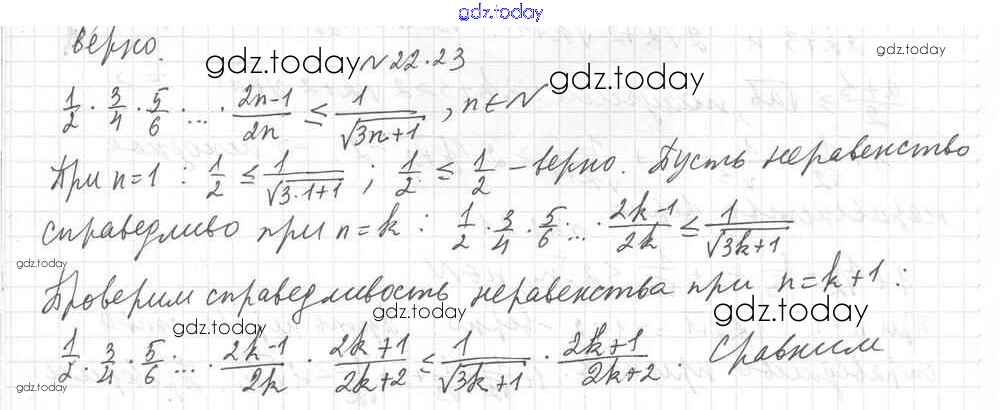 gdz.today
верно.
gdz.today
gdz.today №22.23 gdz.today
1/2 · 3/4 · 5/6 · ... · (2n-1)/2n ≤ 1/√(3n+1), n∈N
При n=1 : 1/2 ≤ 1/√(3·1+1) ; 1/2 ≤ 1/2 – верно. Пусть неравенство
справедливо при n=k : 1/2 · 3/4 · 5/6 ... · (2k-1)/2k ≤ 1/√(3k+1)
gdz.today
Проверим справедливость неравенства при n=k+1 :
gdz.today gdz.today gdz.today
1/2 · 3/4 · 5/6 · ... · (2k-1)/2k · (2k+1)/(2k+2) ≤ 1/√(3k+1) · (2k+1)/(2k+2) . Сравним
gdz.today